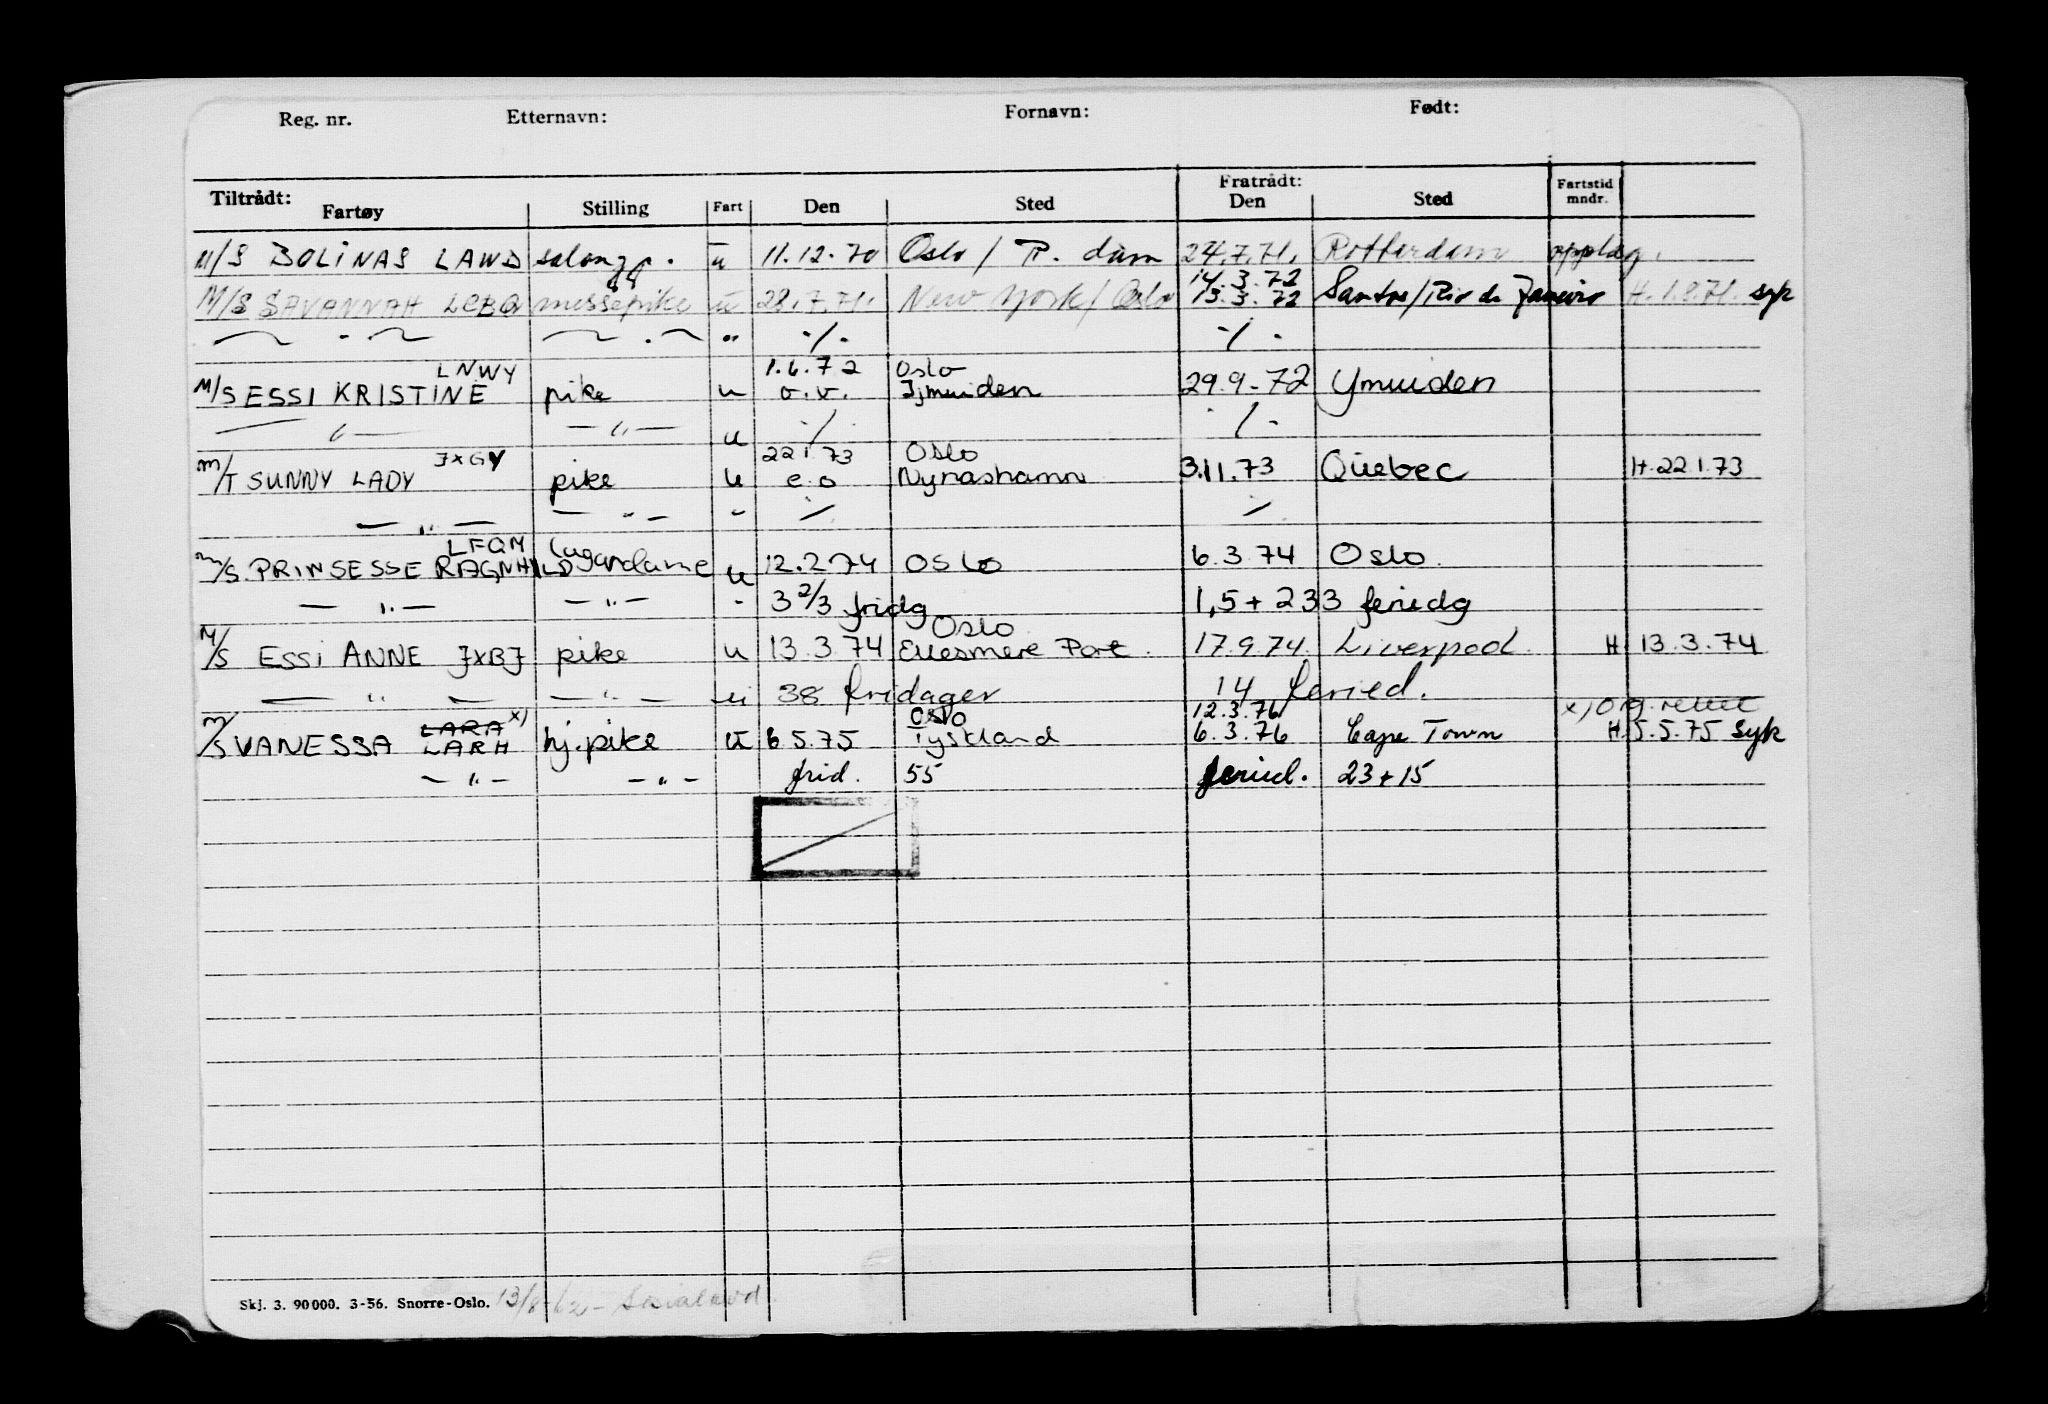 Reg. nr. Etternavn: Fornavn: Født:
Tiltrådt: Fratrådt: Fartstid
Fartøy Stilling Fart Den Sted Den Sted mndr.
M/S BOLINAS LAWD salongp. u 11.12.70 Oslo / R. dam 24.7.71. Rotterdam opplag.
14.3.72
M/S SAVANNAH LCBQ messepike u 28.7.71. New York / Oslo 13.3.72 Santos/Rio de Janeiro H. 1.8.71. syk
— " — — " — " ./. ./.
LNWY 1.6.72 Oslo
M/S ESSI KRISTINE pike u o.v. Ijmuiden 29.9-72 Ymuiden
— " — — " — u ./. ./.
JXGY 22 1.73 Oslo
M/T SUNNY LADY pike u e o Nynashamn 3.11.73 Quebec H. 22 1.73
— " — — " — " ./. ./.
LFQM
M/S. PRINSESSE RAGNHILD lugardame u 12.2 74 OSLO 6.3.74 Oslo.
— " — — " — - 3 2/3 fridg 1,5 + 233 feriedg
Oslo
M/S ESSI ANNE JXBJ pike u 13.3.74 Ellesmere Port. 17.9.74. Liverpool. H. 13.3.74
— " — — " — u 38 fridager 14 feried.
LARA x) Oslo 12.3.76 x) Org. rettet
M/S VANESSA LARH hj.pike u 6 5.75 Tyskland 6.3.76 Cape Town H. 5.5.75 Syk
— " — — " — frid. 55 feried. 23 + 15
Skj. 3. 90000. 3-56. Snorre-Oslo. 13/8-62 -